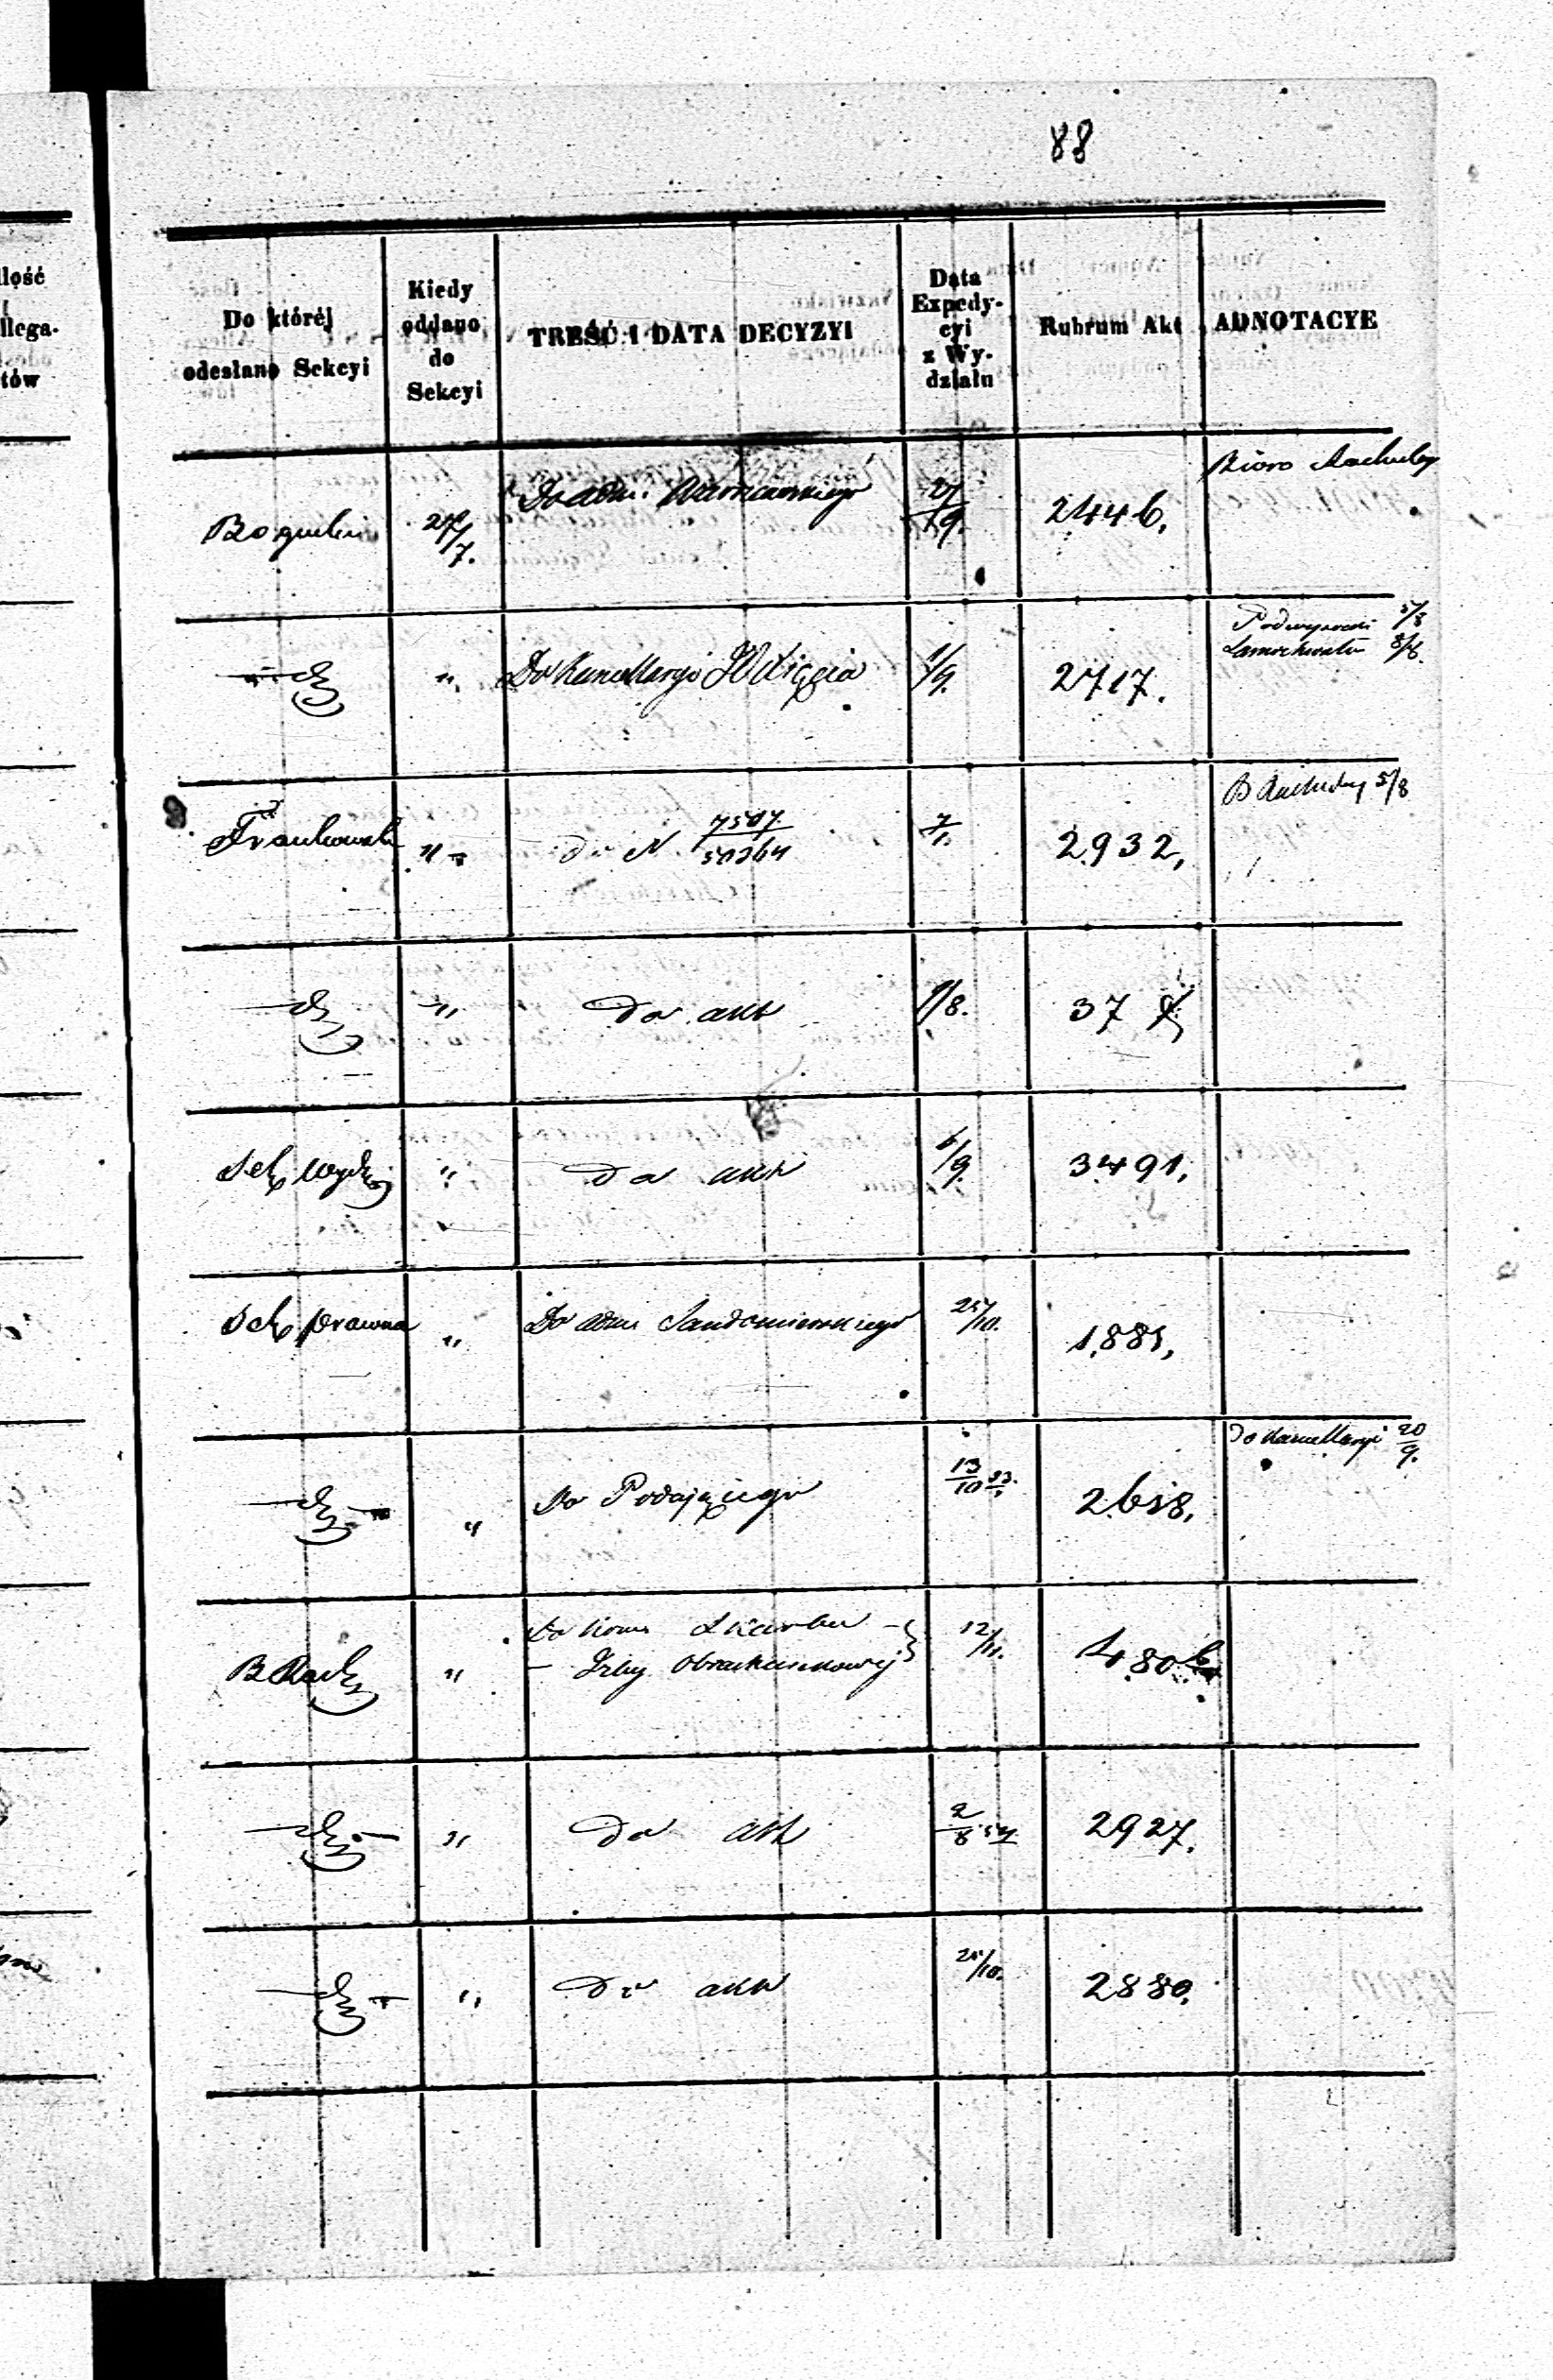 88
lość
i
llega-
tów
Do któréj
odesłano Sekcyi
Kiedy
oddano
do
Sekcyi
TREŚĆ I DATA DECYZYI
Data
Expedy-
cyi
z Wy-
działu
Rubrum Akt
ADNOTACYE
27/7. Do Adm. Warszawskiego 27/9. 2446. Bioro Rachuby
" Do Kancellaryi 1/9. 2717. 5/8
8/8.
Frankowski " do N. 7507/50264 2932, B Rachuby 5/8
" do akt 9/8. 37
Sek " do akt 6/9. 3491,
Sek prawna " Do Adm Sandomierskiego 25/10. 1,881,
" Do Podającego 13/10 2618, Do Kancellaryi 20/9.
B Rach " Do Kom Skarbu
– Izby Obrachunkowej 12/11. 480
" do akt 2/8 2927.
" do akt 2880.